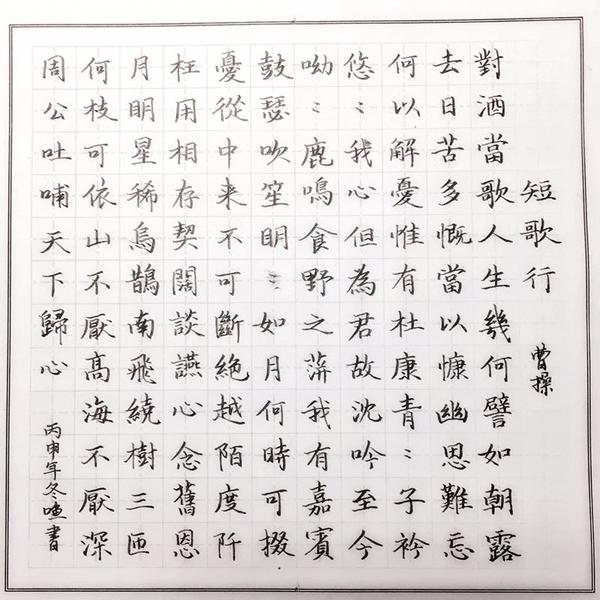 短歌行
曹操
對酒當歌人生幾何譬如朝露
去日苦多慨當以慷幽思難忘
何以解憂惟有杜康青〻子衿
悠〻我心但為君故沈吟至今
呦〻鹿鳴食野之蓱我有嘉賓
鼓瑟吹笙明〻如月何時可掇
憂從中来不可斷絶越陌度阡
枉用相存契闊談讌心念舊恩
月明星稀烏鵲南飛繞樹三匝
何枝可依山不厭高海不厭深
周公吐哺天下歸心
丙申年冬書